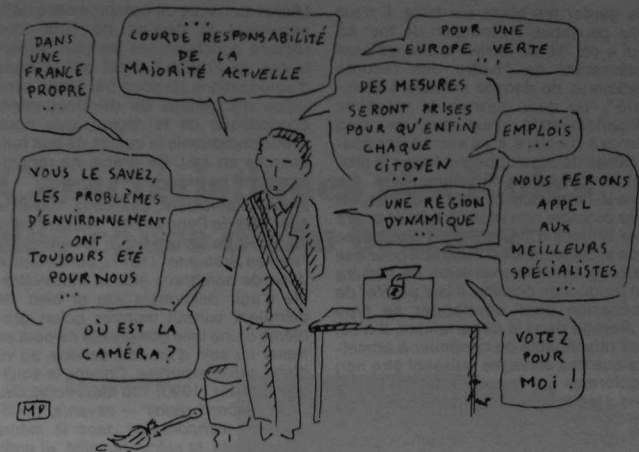 DANS
UNE
FRANCE
PROPRE
...
...
LOURDE RESPONSABILITÉ
DE LA
MAJORITÉ ACTUELLE
POUR UNE
EUROPE VERTE
...
DES MESURES
SERONT PRISES
POUR QU'ENFIN
CHAQUE
CITOYEN
...
EMPLOIS
...
VOUS LE SAVEZ,
LES PROBLÈMES
D'ENVIRONNEMENT
ONT
TOUJOURS ÉTÉ
POUR NOUS
...
UNE RÉGION
DYNAMIQUE
...
NOUS FERONS
APPEL
AUX
MEILLEURS
SPÉCIALISTES
...
OÙ EST LA
CAMÉRA?
VOTEZ
POUR
MOI!
MP